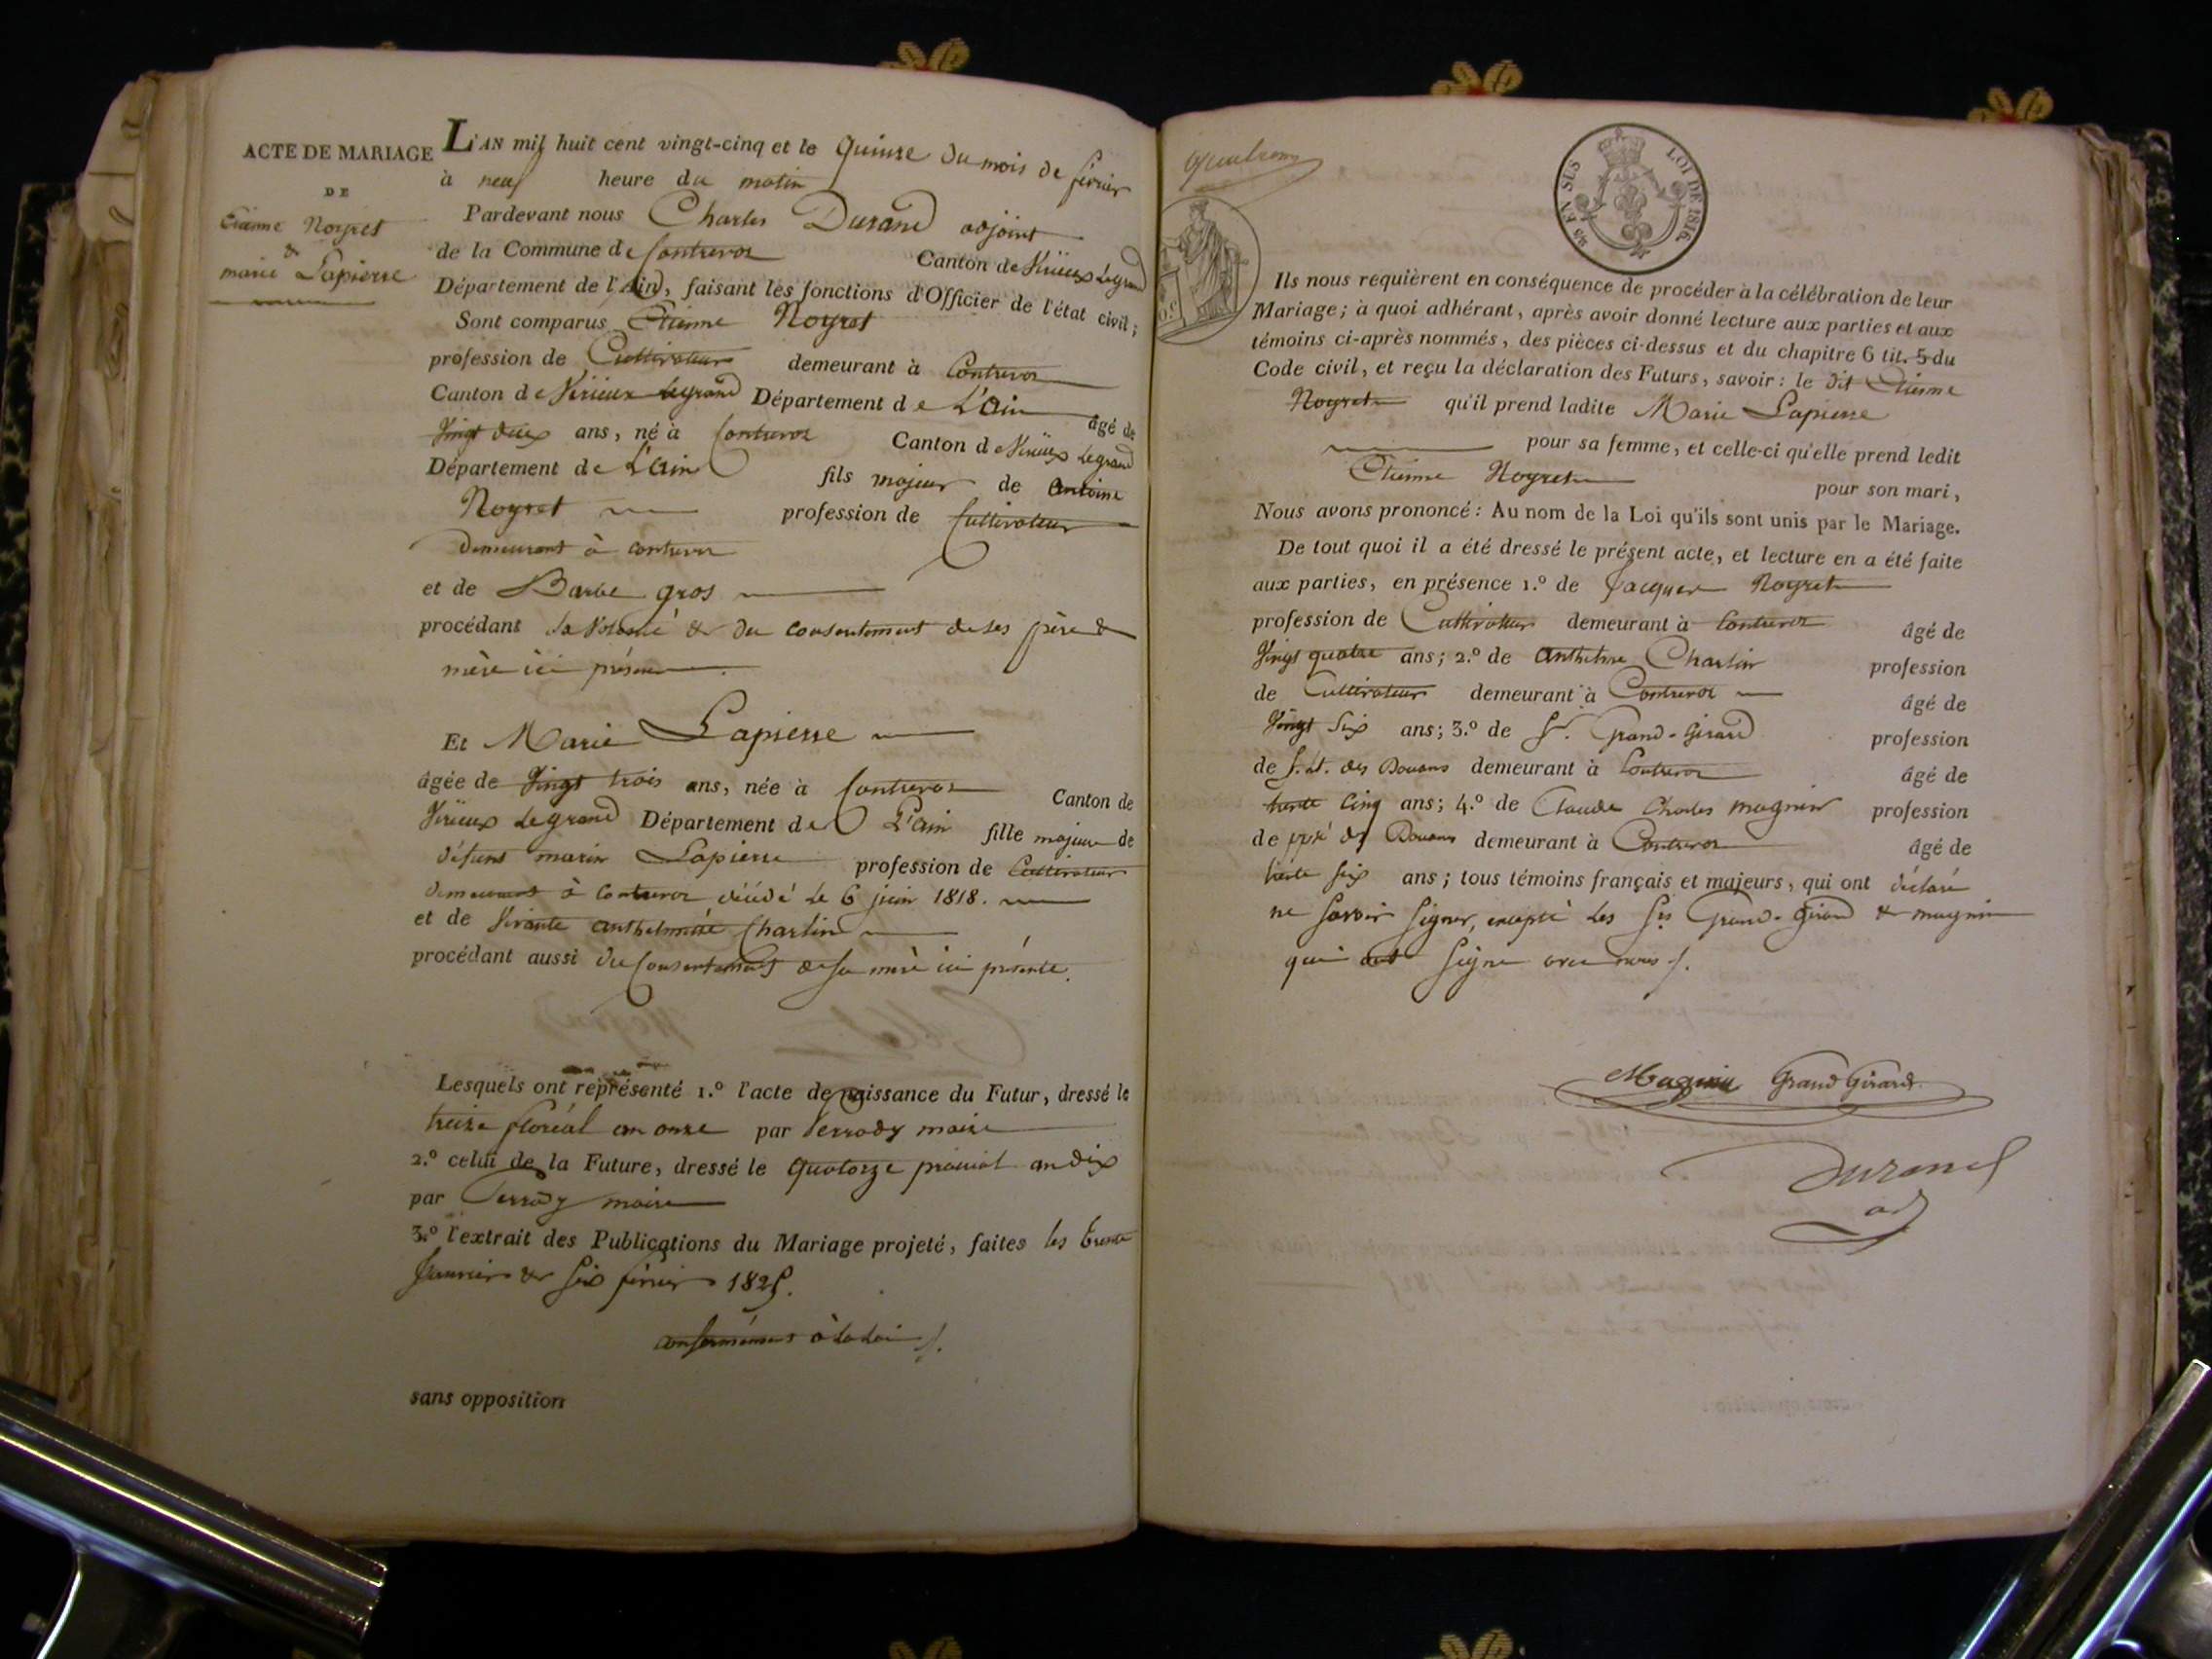 ACTE DE MARIAGE
DE
Etienne Noyret
&
marie Lapierre
L'AN mil huit cent vingt-cinq et le quinze du mois de février
à neuf heure du matin
Pardevant nous Charles Durand adjoint
de la Commune de Contrevoz Canton de Virieux Legrand
Département de l'Ain, faisant les fonctions d'Officier de l'état civil;
Sont comparus Etienne Noyret
profession de Cultivateur demeurant à Contrevoz
Canton de Virieux Legrand Département de L'Ain âgé de
Vingt deux ans, né à Contrevoz Canton de Virieux Legrand
Département de L'Ain fils majeur de Antoine
Noyret profession de Cultivateur
Demeurant à Contrevoz
et de Barbe gros
procédant de Volonté & du consentement de ses père &
mère ici présens
Et Marie Lapierre
âgée de Vingt trois ans, née à Contrevoz Canton de
Virieux Legrand Département de L'Ain fille majeure de
défunt marin Lapierre profession de Cultivateur
demeurant à Contrevoz décédé le 6 juin 1818.
et de Vivante anthelmine Charlin
procédant aussi du Consentement de sa mère ici présente.
Lesquels ont représenté 1.º l'acte de naissance du Futur, dressé le
treize floréal an onze par Perrody maire
2.º celui de la Future, dressé le quatorze prairial an dix
par Perrody maire
3.º l'extrait des Publications du Mariage projeté, faites les trente
Janvier & six février 1825.
conformément à la Loi
sans opposition
EN SUS LOI DE 1816.
Ils nous requièrent en conséquence de procéder à la célébration de leur
Mariage; à quoi adhérant, après avoir donné lecture aux parties et aux
témoins ci-après nommés, des pièces ci-dessus et du chapitre 6 tit. 5 du
Code civil, et reçu la déclaration des Futurs, savoir: le dit Etienne
Noyret qu'il prend ladite Marie Lapierre
pour sa femme, et celle-ci qu'elle prend ledit
Etienne Noyret pour son mari,
Nous avons prononcé: Au nom de la Loi qu'ils sont unis par le Mariage.
De tout quoi il a été dressé le présent acte, et lecture en a été faite
aux parties, en présence 1.º de Jacques Noyret
profession de Cultivateur demeurant à Contrevoz âgé de
Vingt quatre ans; 2.º de anthelme Charlin profession
de Cultivateur demeurant à Contrevoz âgé de
Vingt six ans; 3.º de Sr. Grand-Girard profession
de S. Lt. des Douans demeurant à Contrevoz âgé de
trente cinq ans; 4.º de Claude Charles magnin profession
de ppsé des Douans demeurant à Contrevoz âgé de
trente six ans; tous témoins français et majeurs, qui ont déclaré
ne savoir signer, excepté les Srs Grand-Girard & magnin
qui ont signé avec nous
Magnin Grand Girard
Durand
adj